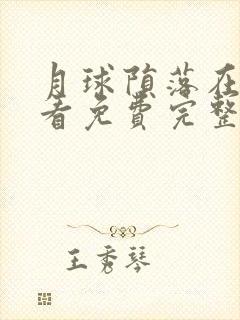 月球陨落在
看免费完整
王秀琴